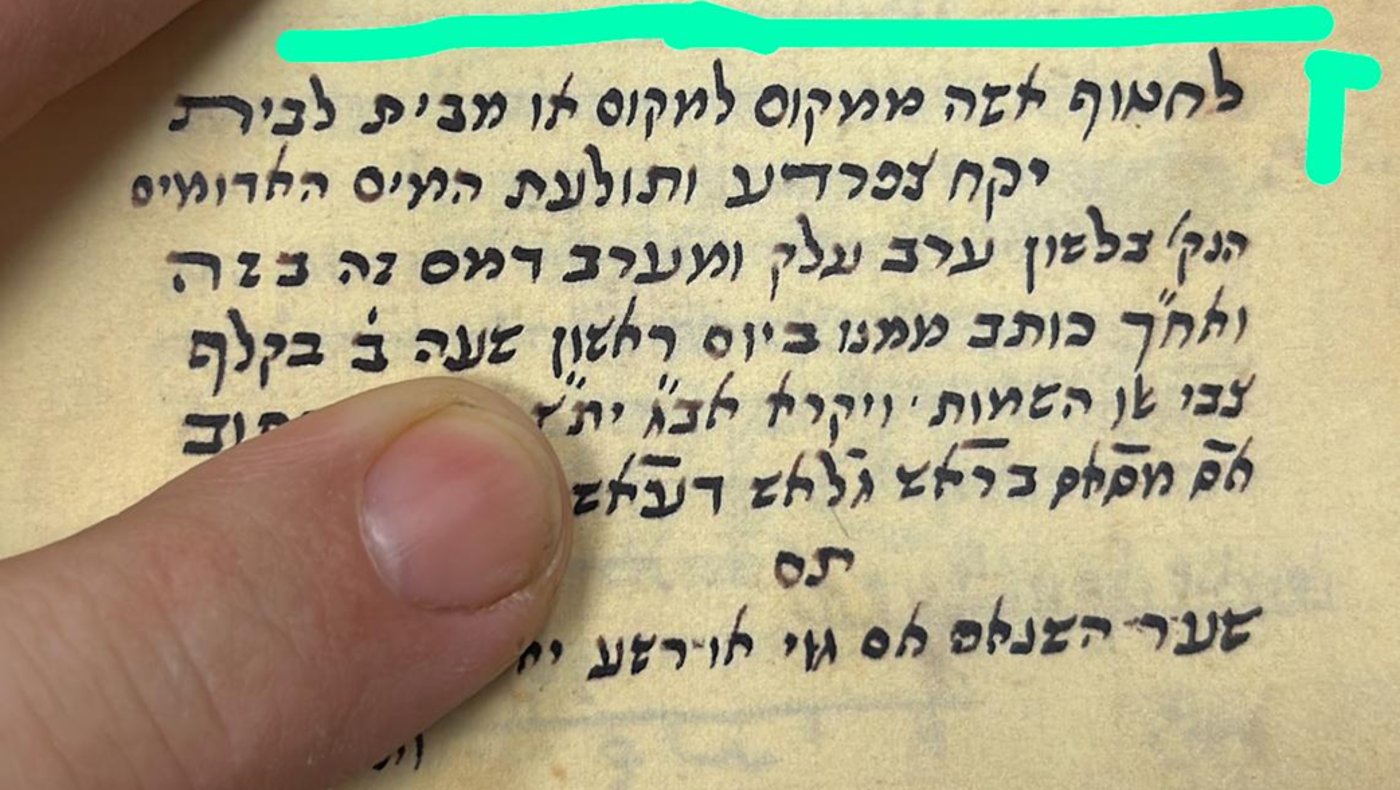 לחטוף אשה ממקום למקום או מבית לבית
יקח צפרדע ותולעת המים האדומים
הנק׳ בלשון ערב עלק ומערב דמם זה בזה
ואח״ך כותב ממנו ביום ראשון שעה ב׳ בקלף
צבי אלו השמות ויקרא אב״ג ית״ץ
אם מסאס בראש גלאש דעאש
תם
שער השנאה אם גוי או רשע